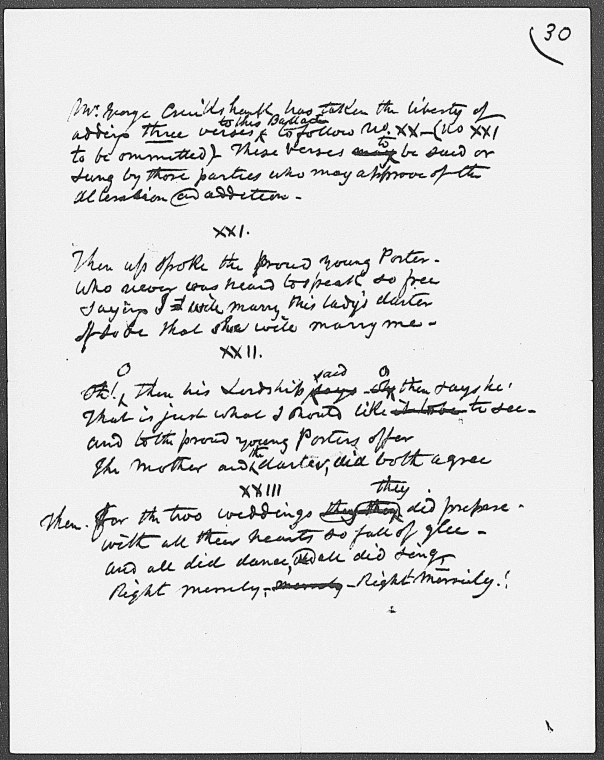 30
Mr. George Cruikshank has taken the liberty of
adding three verses to this Ballad to follow No. XX - (No XXI
to be ommitted) - These verses may to be said or
sung by those parties who may approve of the
alteration and addition -
XXI.
Then up spoke the proud young Porter -
Who never was heard to speak so free
Saying I will marry this lady's darter
If so be that she will marry me -
XXII.
Oh! O then his Lordship says said oh O then says he!
That is just what I should like to see -
and to the proud young Porters offer
The Mother and the darter, did both agree
XXIII
Then. For the two weddings they they they did prepare -
with all their hearts so full of glee -
and all did dance, and all did sing,
Right merrily - merrily - Right Merrily!!